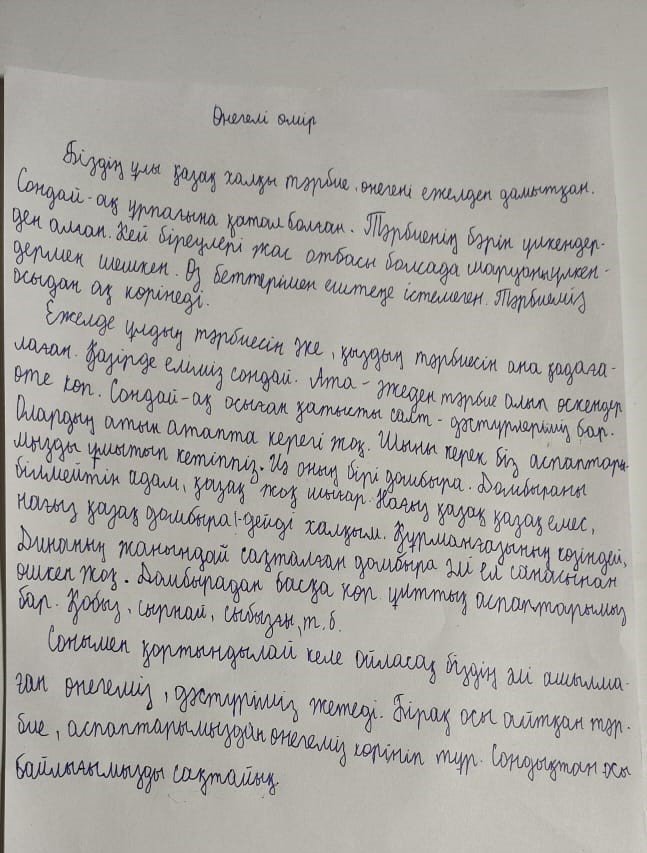 Өнегелі өмір
Біздің ұлы қазақ халқы тәрбие, өнегені ежелден дамытқан.
Сондай-ақ ұрпағына қатал болған. Тәрбиенің бәрін үлкендер-
ден алған. Кей біреулері жас отбасы болсада шаруаны үлкен-
дермен шешкен. Өз беттерімен ештеңе істемеген. Тәрбиеміз
осыдан ақ көрінеді.
Ежелде ұлдың тәрбиесін әке, қыздың тәрбиесін ана қадаға-
лаған. Қазірде еліміз сондай. Ата-әжеден тәрбие алып өскендер
өте көп. Сондай-ақ осыған қатысты салт-дәстүрлеріміз бар.
Олардың атын атапта керегі жоқ. Шыны керек біз аспаптары-
мызды ұмытып кетіппіз. Из оның бірі домбыра. Домбыраны
білмейтін адам, қазақ жоқ шығар. Нағыз қазақ қазақ емес,
нағыз қазақ домбыра!-дейді халқым. Құрманғазының көзіндей,
Динаның жанындай сақталған домбыра әлі ел санасынан
өшкен жоқ. Домбырадан басқа көп ұлттық аспаптарымыз
бар. Қобыз, сырнай, сыбызғы, т.б.
Сонымен қортындылай келе ойласақ біздің әлі ашылма-
ған өнегеміз, дәстүріміз жетеді. Бірақ осы айтқан тәр-
бие, аспаптарымыздан өнегеміз көрініп тұр. Сондықтан осы
байлығымызды сақтайық.